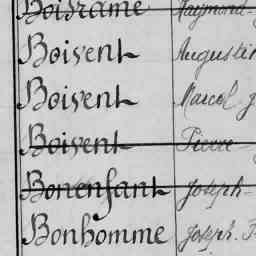 Boisramé Raymond
Boivent Augustin
Boivent Marcel
Boivent Pierre
Bonenfant Joseph
Bonhomme Joseph.